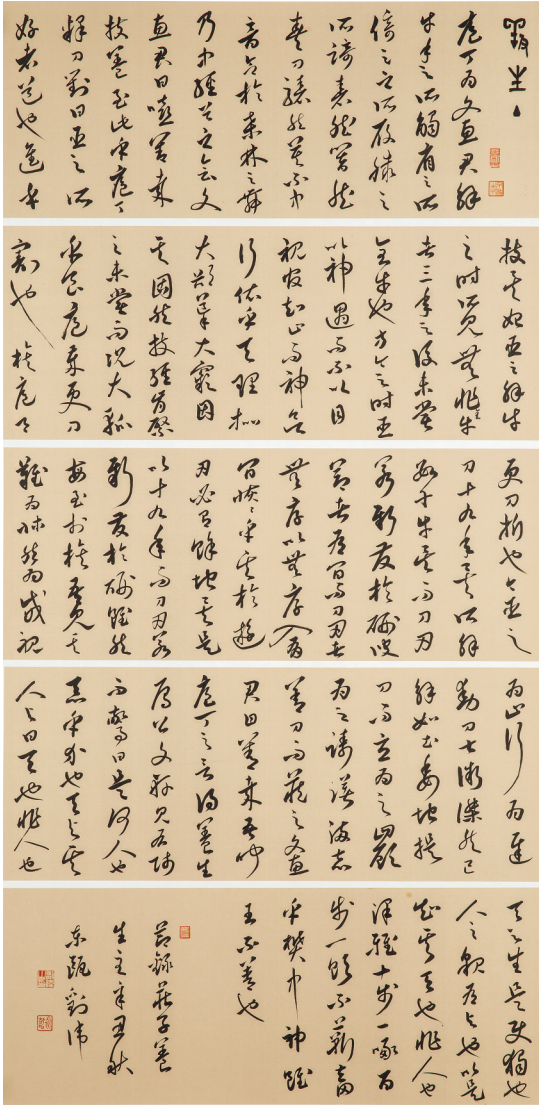 養生主
庖丁為文惠君解
牛手之所觸肩之所
倚足之所履膝之
所踦砉然嚮然
奏刀騞然莫不中
音合於桑林之舞
乃中經首之會文
惠君曰嘻善哉
技蓋至此乎庖丁
釋刀對曰臣之所
好者道也進乎
技矣始臣之解牛
之時所見無非牛
者三年之後未嘗
全牛也方今之時臣
以神遇而不以目
視官知止而神欲
行依乎天理批
大郤導大窾因
其固然技經肯綮
之未嘗而況大軱
乎良庖歲更刀
割也族庖月
更刀折也今臣之
刀十九年矣所解
數千牛矣而刀刃
若新發於硎彼
節者有間而刀刃者
無厚以無厚入有
間恢恢乎其於遊
刃必有餘地矣是
以十九年而刀刃若
新發於硎雖然
每至於族吾見其
難為怵然為戒視
為止行為遲
動刀甚微謋然已
解如土委地提
刀而立為之四顧
為之躊躇滿志
善刀而藏之文惠
君曰善哉吾聞
庖丁之言得養生
焉公文軒見右師
而驚曰是何人也
惡乎介也天與其
人與曰天也非人也
天之生是使獨也
人之貌有與也以是
知其天也非人也
澤雉十步一啄百
步一飲不蘄畜
乎樊中神雖
王不善也
節錄莊子養
生主辛丑秋
東甌劉偉